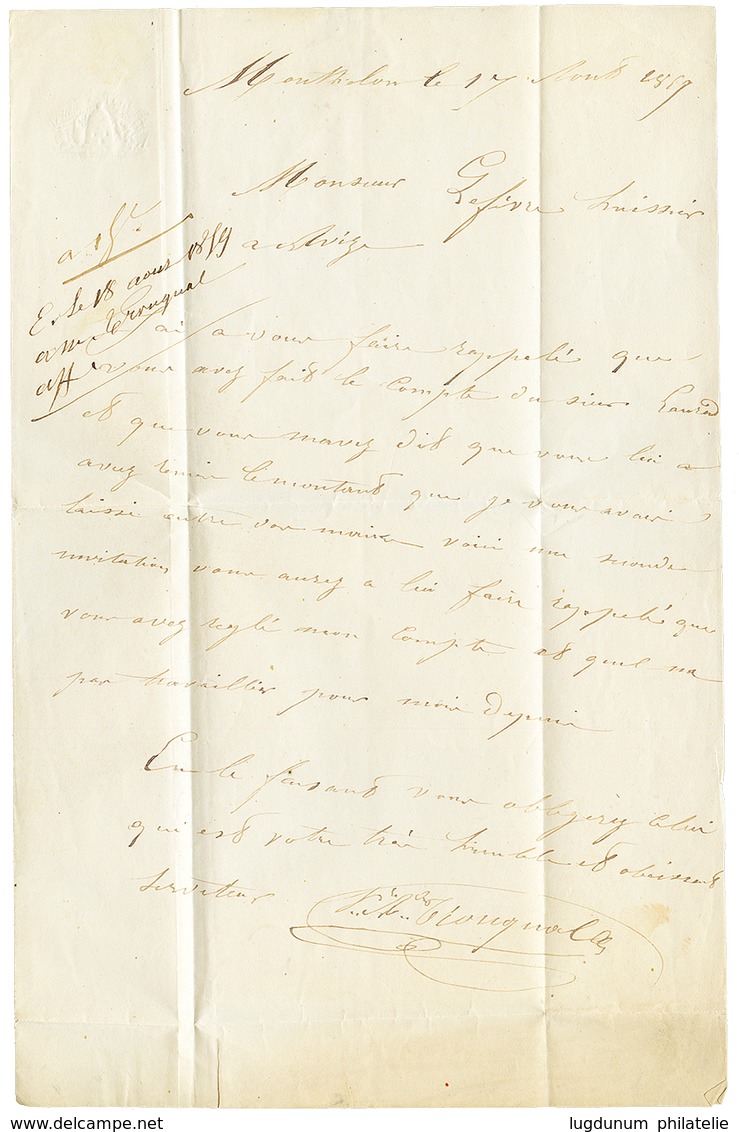 Monthelon le 17 Aout 1859
Monsieur Lefèvre huissier
a avize
E. le 18 aout 1859
a mr Trouqual
aff
ai a vous faire rappelé que
vous avez fait le compte du sieur
et que vous mavez dit que vous lui a
avez remis le montant que je vous avais
laissé entre vos mains voici une seconde
invitation vous aurez a lui faire rappelé que
vous avez reglé mon compte et quil na
pas travaillier pour moi depuis
En le faisant vous obligerez celui
qui est votre très humble et obeissant
serviteur
Trouqual
lugdunum philatelie